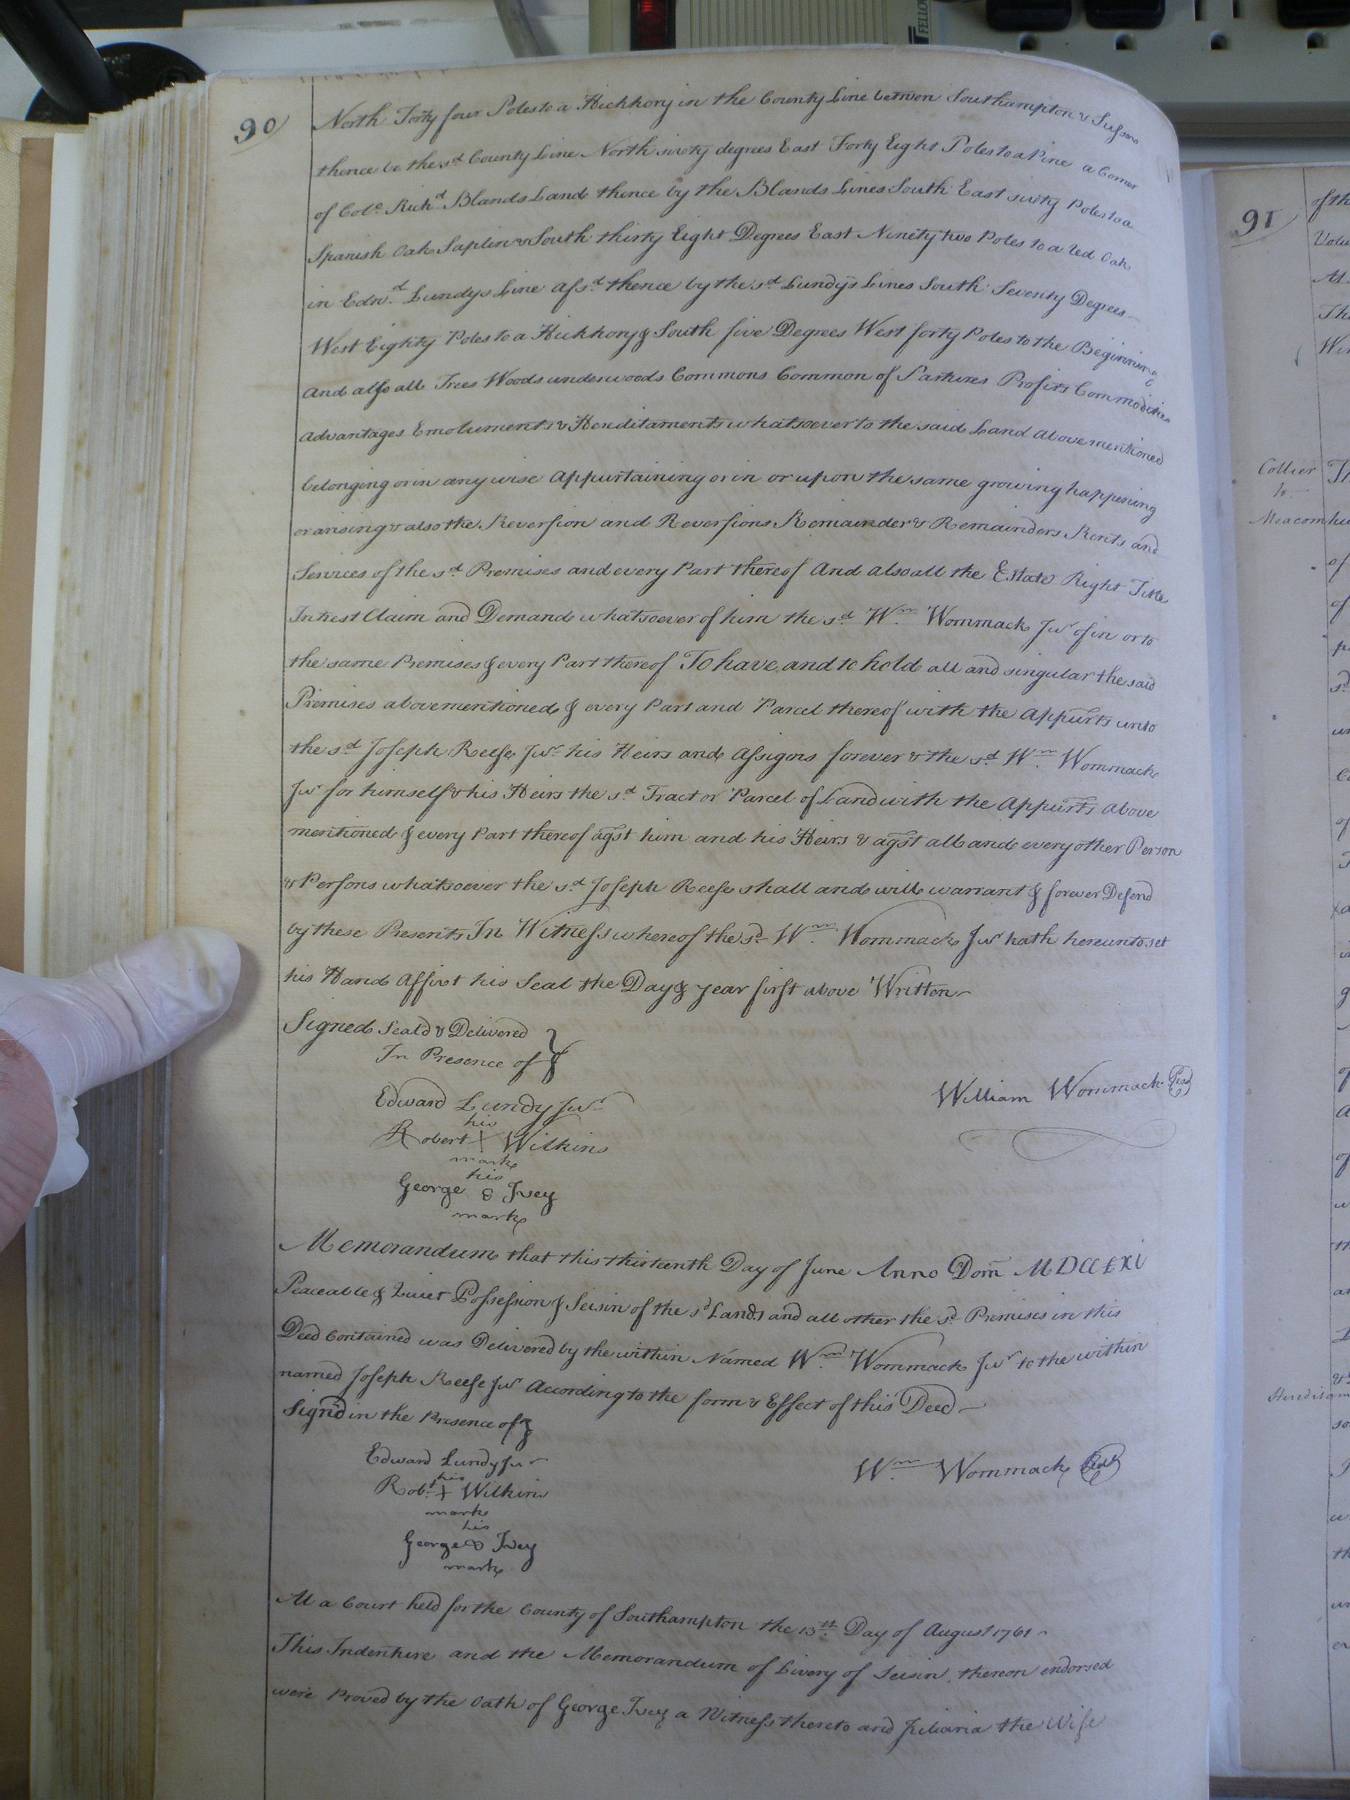 90
North Forty four Poles to a Hickkory in the County Line between Southampton & Sussex
thence be the sd County Line North sixty degrees East Forty Eight Poles to a Pine a Corner
of Colo. Richd Blands Land thence by the Blands Lines South East sixty Poles to a
Spanish Oak Saplin & South thirty Eight Degrees East Ninety two Poles to a Red Oak
in Edwd Lundys Line afsd thence by the sd Lundys Lines South Seventy Degrees
West Eighty Poles to a Hickkory & South five Degrees West forty Poles to the Beginning
And also all Trees Woods underwoods Commons Common of Pastures Profits Commodities
Advantages Emoluments & Hereditaments whatsoever to the said Land above mentioned
belonging or in any wise Appurtaining or in or upon the same growing happening
or arising & also the Reversion and Reversions Remainder & Remainders Rents and
Services of the sd Premises and every Part thereof And also all the Estate Right Title
Intrest Claim and Demand whatsoever of him the sd Wm Wommack Junr of in or to
the same Premises & every Part thereof To have and to hold all and singular the said
Premises abovementioned & every Part and Parcel thereof with the Appurts unto
the sd Joseph Reese Junr his Heirs and Assigns forever & the sd Wm Wommack
Junr for himself & his Heirs the sd Tract or Parcel of Land with the Appurts above
mentioned & every Part thereof agst him and his Heirs & agst all and every other Person
& Persons whatsoever the sd Joseph Reese shall and will warrant & forever Defend
by these Presents In Witness whereof the sd Wm Wommack Junr hath hereunto set
his Hand Affixt his Seal the Day & year first above Written
Signed Seald & Delivered
In Presence of
Edward Lundy Junr
William Wommack Seal
his
Robert X Wilkins
mark
his
George 8 Ivey
mark
Memorandum that this thirteenth Day of June Anno Dom MDCCLXI
Peaceable & Quiet Possession & Seisin of the sd Lands and all other the sd Premises in this
Deed Contained was Delivered by the within Named Wm Wommack Junr to the within
named Joseph Reese Junr According to the form & Effect of this Deed
Signd in the Presence of
Edward Lundy Junr
Wm Wommack Seal
his
Robt X Wilkins
mark
his
George 8 Ivey
mark
At a Court held for the County of Southampton the 13th Day of August 1761
This Indenture and the Memorandum of Livery of Seisin thereon endorsed
were Proved by the Oath of George Ivey a Witness thereto and Juliaria the Wife
91
Collier
to
Meacom